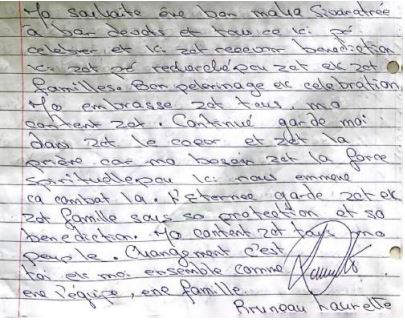 Mo souhaite ène bon maha Sivaratrée
a ban devots et tous ce ki pé
celebrer et ki zot recevoir benediction
ki zot pé recherché pou zot ek zot
familles. Bon pelerinage ek celebration
Mo embrasse zot tous, mo
content zot. Continué garde moi
dans zot le coeur et zot la
prière car mo besoin zot la force
spirituelle pou ki nous emmene
ca combat la. L'Eternel garde zot ek
zot famille sous so protection et so
benediction. Mo content zot tous mo
peuple. Changement c'est
toi ek moi ensemble comme
ene l'équipe, ene famille.
Bruneau Laurette